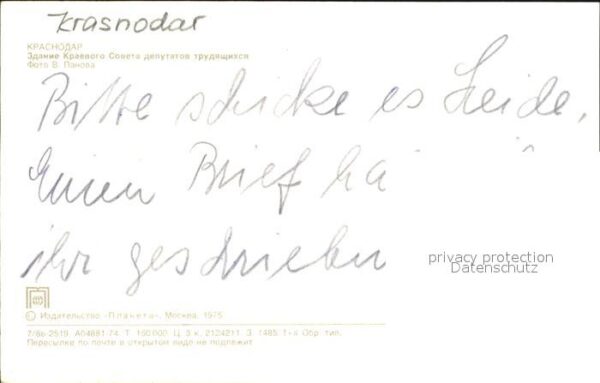 Krasnodar
КРАСНОДАР
Здание Краевого Совета депутатов трудящихся
Фото В. Панова
Bitte schicke es Heide,
Einen Brief ha
ihr geschrieben
privacy protection
Datenschutz
© Издательство «Планета», Москва, 1975
7/8б-2519. А04881-74. Т. 150 000. Ц. 3 к. 2124211. З. 1485. 1-я Обр. тип.
Пересылке по почте в открытом виде не подлежит